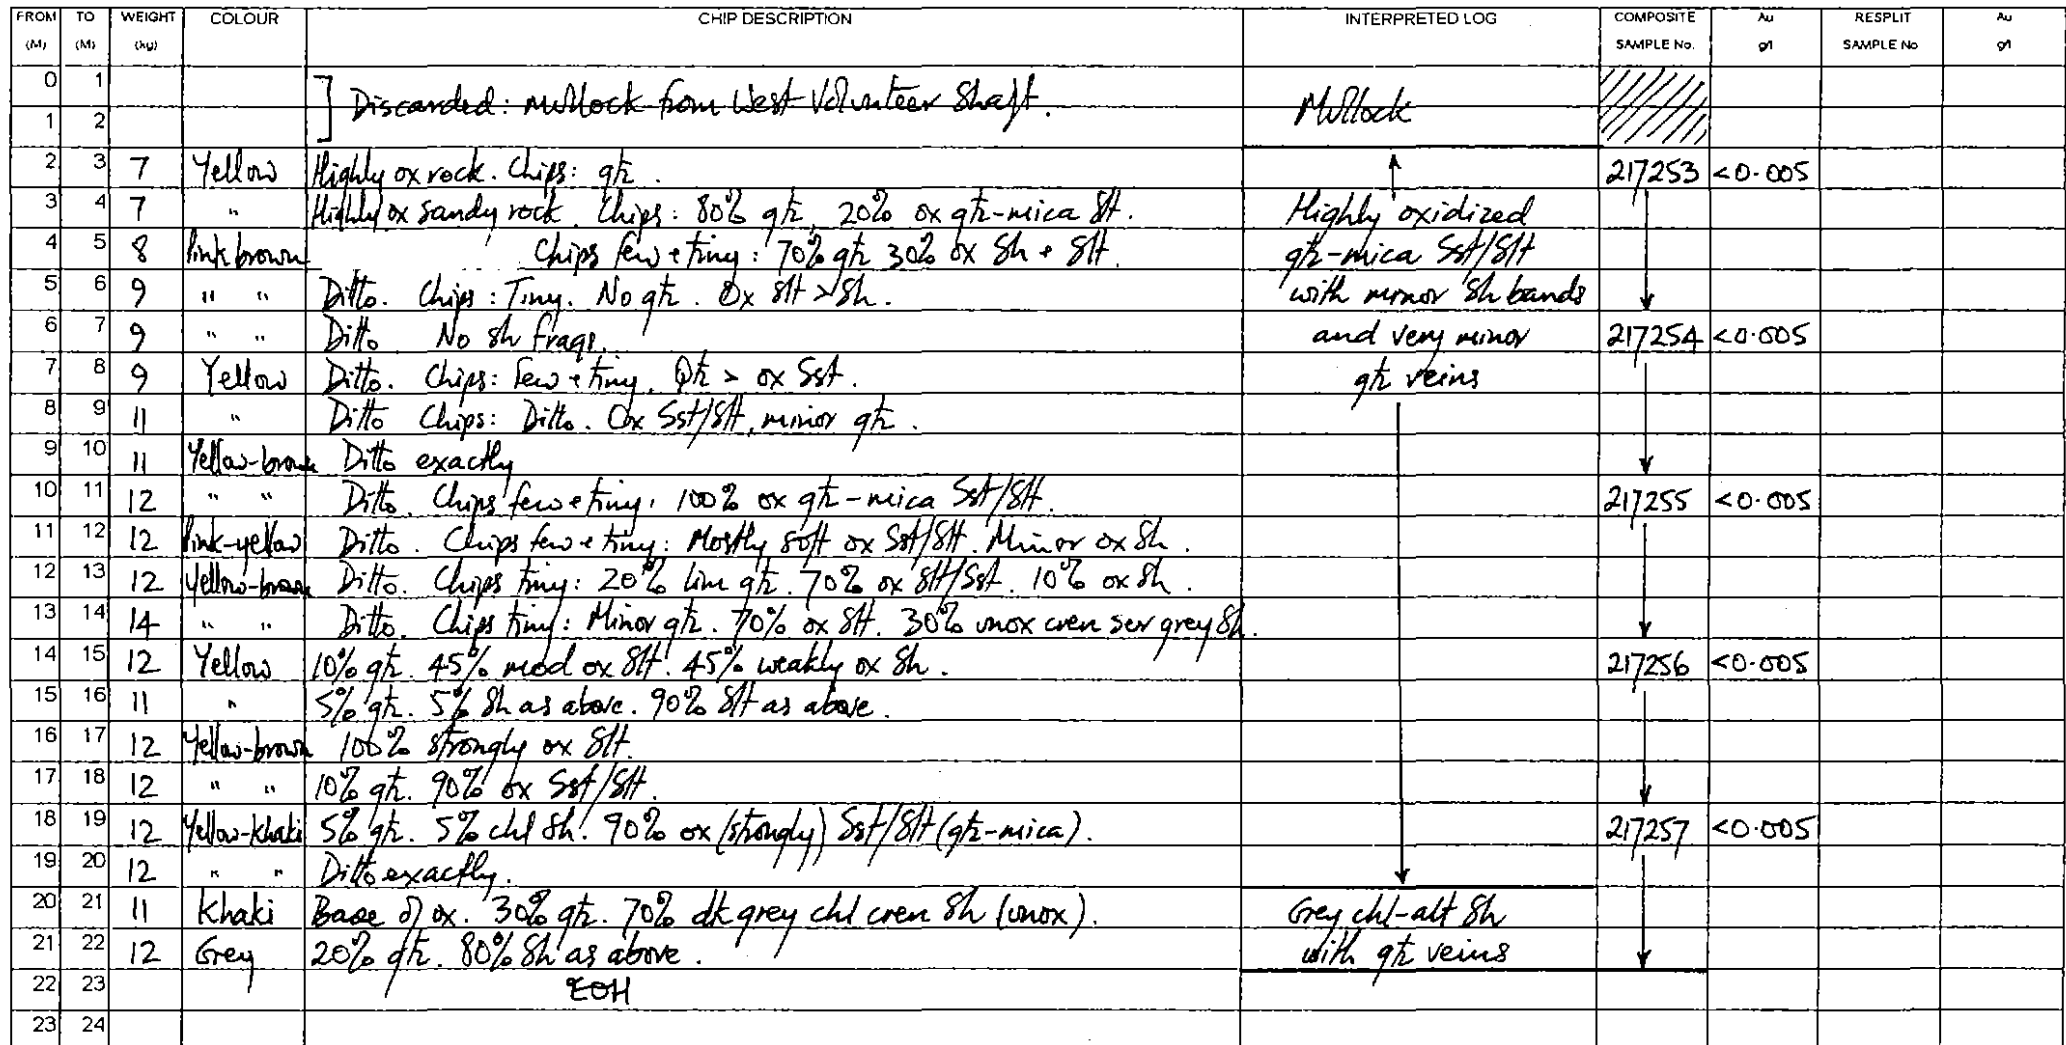 FROM TO WEIGHT COLOUR CHIP DESCRIPTION INTERPRETED LOG COMPOSITE Au RESPLIT Au
(M) (M) (kg) SAMPLE No. g/t SAMPLE No g/t
0 1
] Discarded: Mullock from West Volunteer Shaft. Mullock
1 2
2 3 7 Yellow Highly ox rock. Chips: qtz. 217253 <0.005
3 4 7 " Highly ox sandy rock. Chips: 80% qtz, 20% ox qtz-mica Slt. Highly oxidized
4 5 8 Pink brown Chips few & tiny: 70% qtz 30% ox Sh & Slt. qtz-mica Sst/Slt
5 6 9 " " Ditto. Chips: Tiny. No qtz. Ox Slt > Sh. with minor Sh bands
6 7 9 " " Ditto No Sh frags. and very minor 217254 <0.005
7 8 9 Yellow Ditto. Chips: Few & tiny. Qtz > ox Sst. qtz veins
8 9 11 " Ditto Chips: Ditto. Ox Sst/Slt, minor qtz.
9 10 11 Yellow-brown Ditto exactly
10 11 12 " " Ditto. Chips few & tiny. 100% ox qtz-mica Sst/Slt. 217255 <0.005
11 12 12 Pink-yellow Ditto. Chips few & tiny: Mostly soft ox Sst/Slt. Minor ox Sh.
12 13 12 Yellow-brown Ditto. Chips tiny: 20% lim qtz. 70% ox Slt/Sst. 10% ox Sh.
13 14 14 " " Ditto. Chips tiny: Minor qtz. 70% ox Slt. 30% unox cren ser grey Sh.
14 15 12 Yellow 10% qtz. 45% mod ox Slt. 45% weakly ox Sh. 217256 <0.005
15 16 11 " 5% qtz. 5% Sh as above. 90% Slt as above.
16 17 12 Yellow-brown 100% strongly ox Slt.
17 18 12 " " 10% qtz. 90% ox Sst/Slt.
18 19 12 Yellow-Khaki 5% qtz. 5% chl Sh. 90% ox (strongly) Sst/Slt (qtz-mica). 217257 <0.005
19 20 12 " " Ditto exactly.
20 21 11 Khaki Base of ox. 30% qtz. 70% dk grey chl cren Sh (unox). Grey chl-alt Sh
21 22 12 Grey 20% qtz. 80% Sh as above. with qtz veins
22 23 EOH
23 24